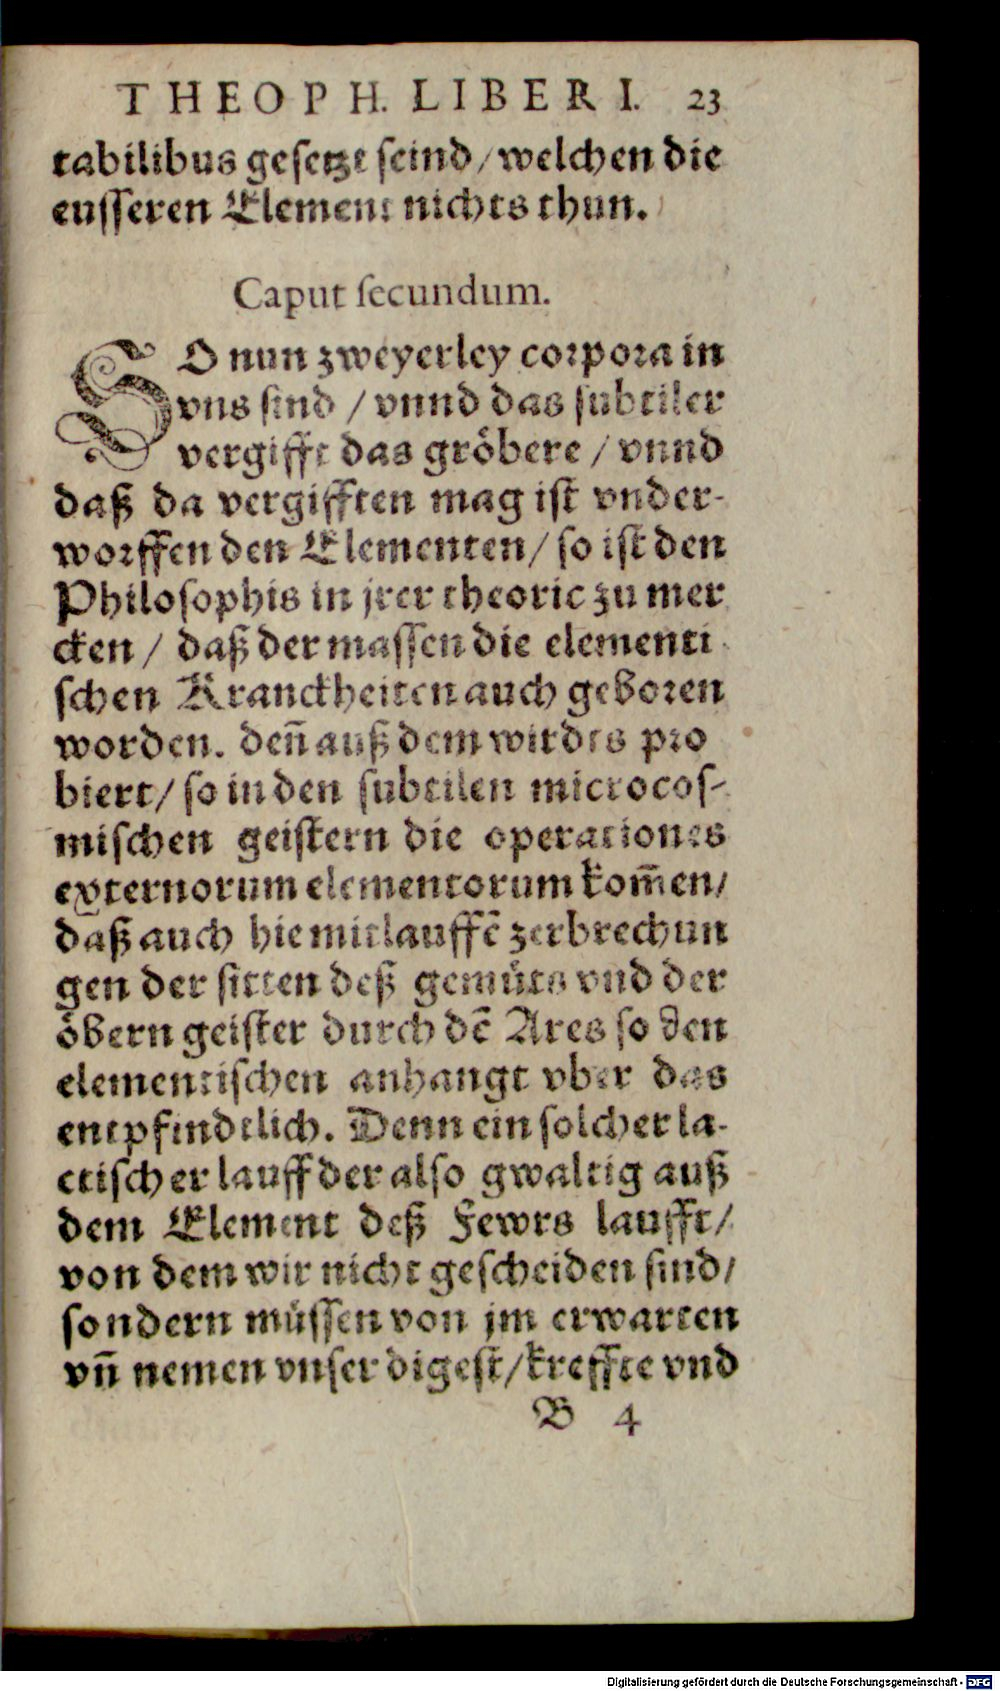 THEOPH. LIBER I. 23
tabilibus gesetzt seind/welchen die
eusseren Element nichts thun.
Caput secundum.
SO nun zweyerley corpora in
vns sind / vnnd das subtiler
vergifft das gröbere / vnnd
daß da vergifften mag ist vnder-
worffen den Elementen/ so ist den
Philosophis in jrer theoric zu mer
cken / daß der massen die elementi
schen Kranckheiten auch geboren
worden. deñ auß dem wirdts pro
biert/ so in den subtilen microcos-
mischen geistern die operationes
externorum elementorum kom̃en/
daß auch hie mitlauffẽ zerbrechun
gen der sitten deß gemüts vnd der
öbern geister durch dẽ Ares so den
elementischen anhangt vber das
entpfindtlich. Denn ein solcher la-
ctischer lauff der also gwaltig auß
dem Element deß Fewrs laufft/
von dem wir nicht gescheiden sind/
sondern müssen von jm erwarten
vñ nemen vnser digest/kreffte vnd
B 4
Digitalisierung gefördert durch die Deutsche Forschungsgemeinschaft - DFG